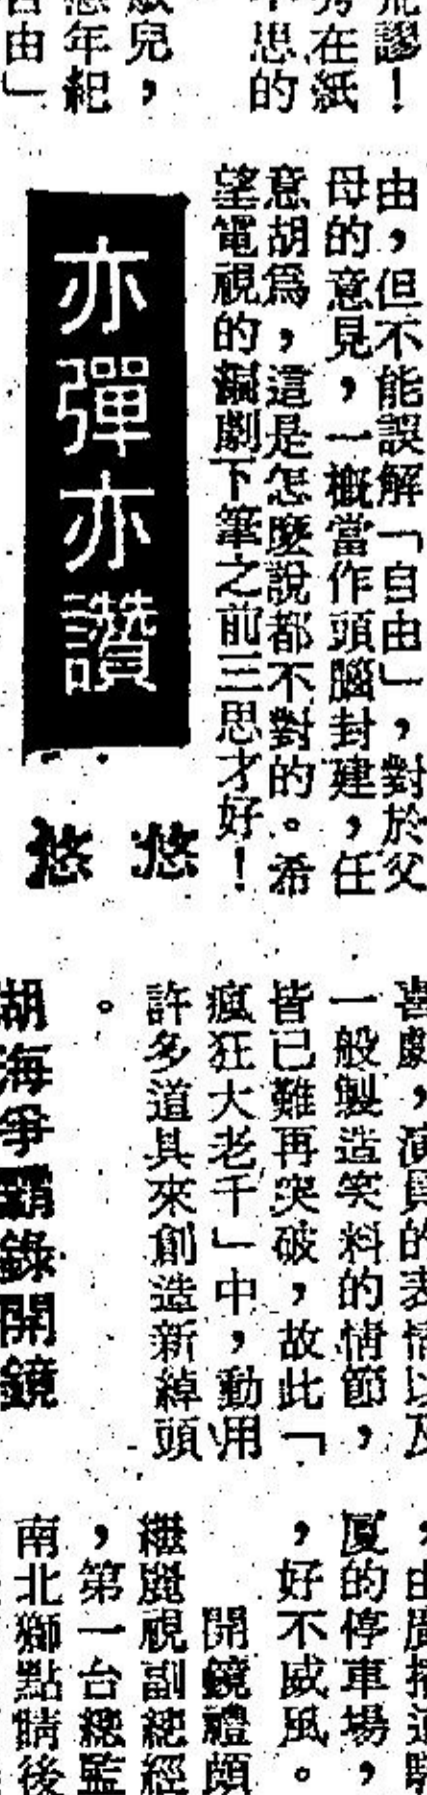 謬!
秀在紙
思的
兒,
年紀
自由」
由,但不能誤解「自由」,對於父
母的意見,一概當作頭腦封建,任
意胡爲,這是怎麼說都不對的。希
望電視的編劇下筆之前三思才好!
亦彈亦讚
悠悠
喜劇,演員的表情以及
一般製造笑料的情節,
皆已難再突破,故此「
瘋狂大老千」中,動用
許多道具來創造新綽頭
。
胡海爭霸錄開鏡
,由廣播道
厦的停車場,
,好不威風。
開鏡禮頗
繼麗視副總經
,第一台總監
南北獅點睛後